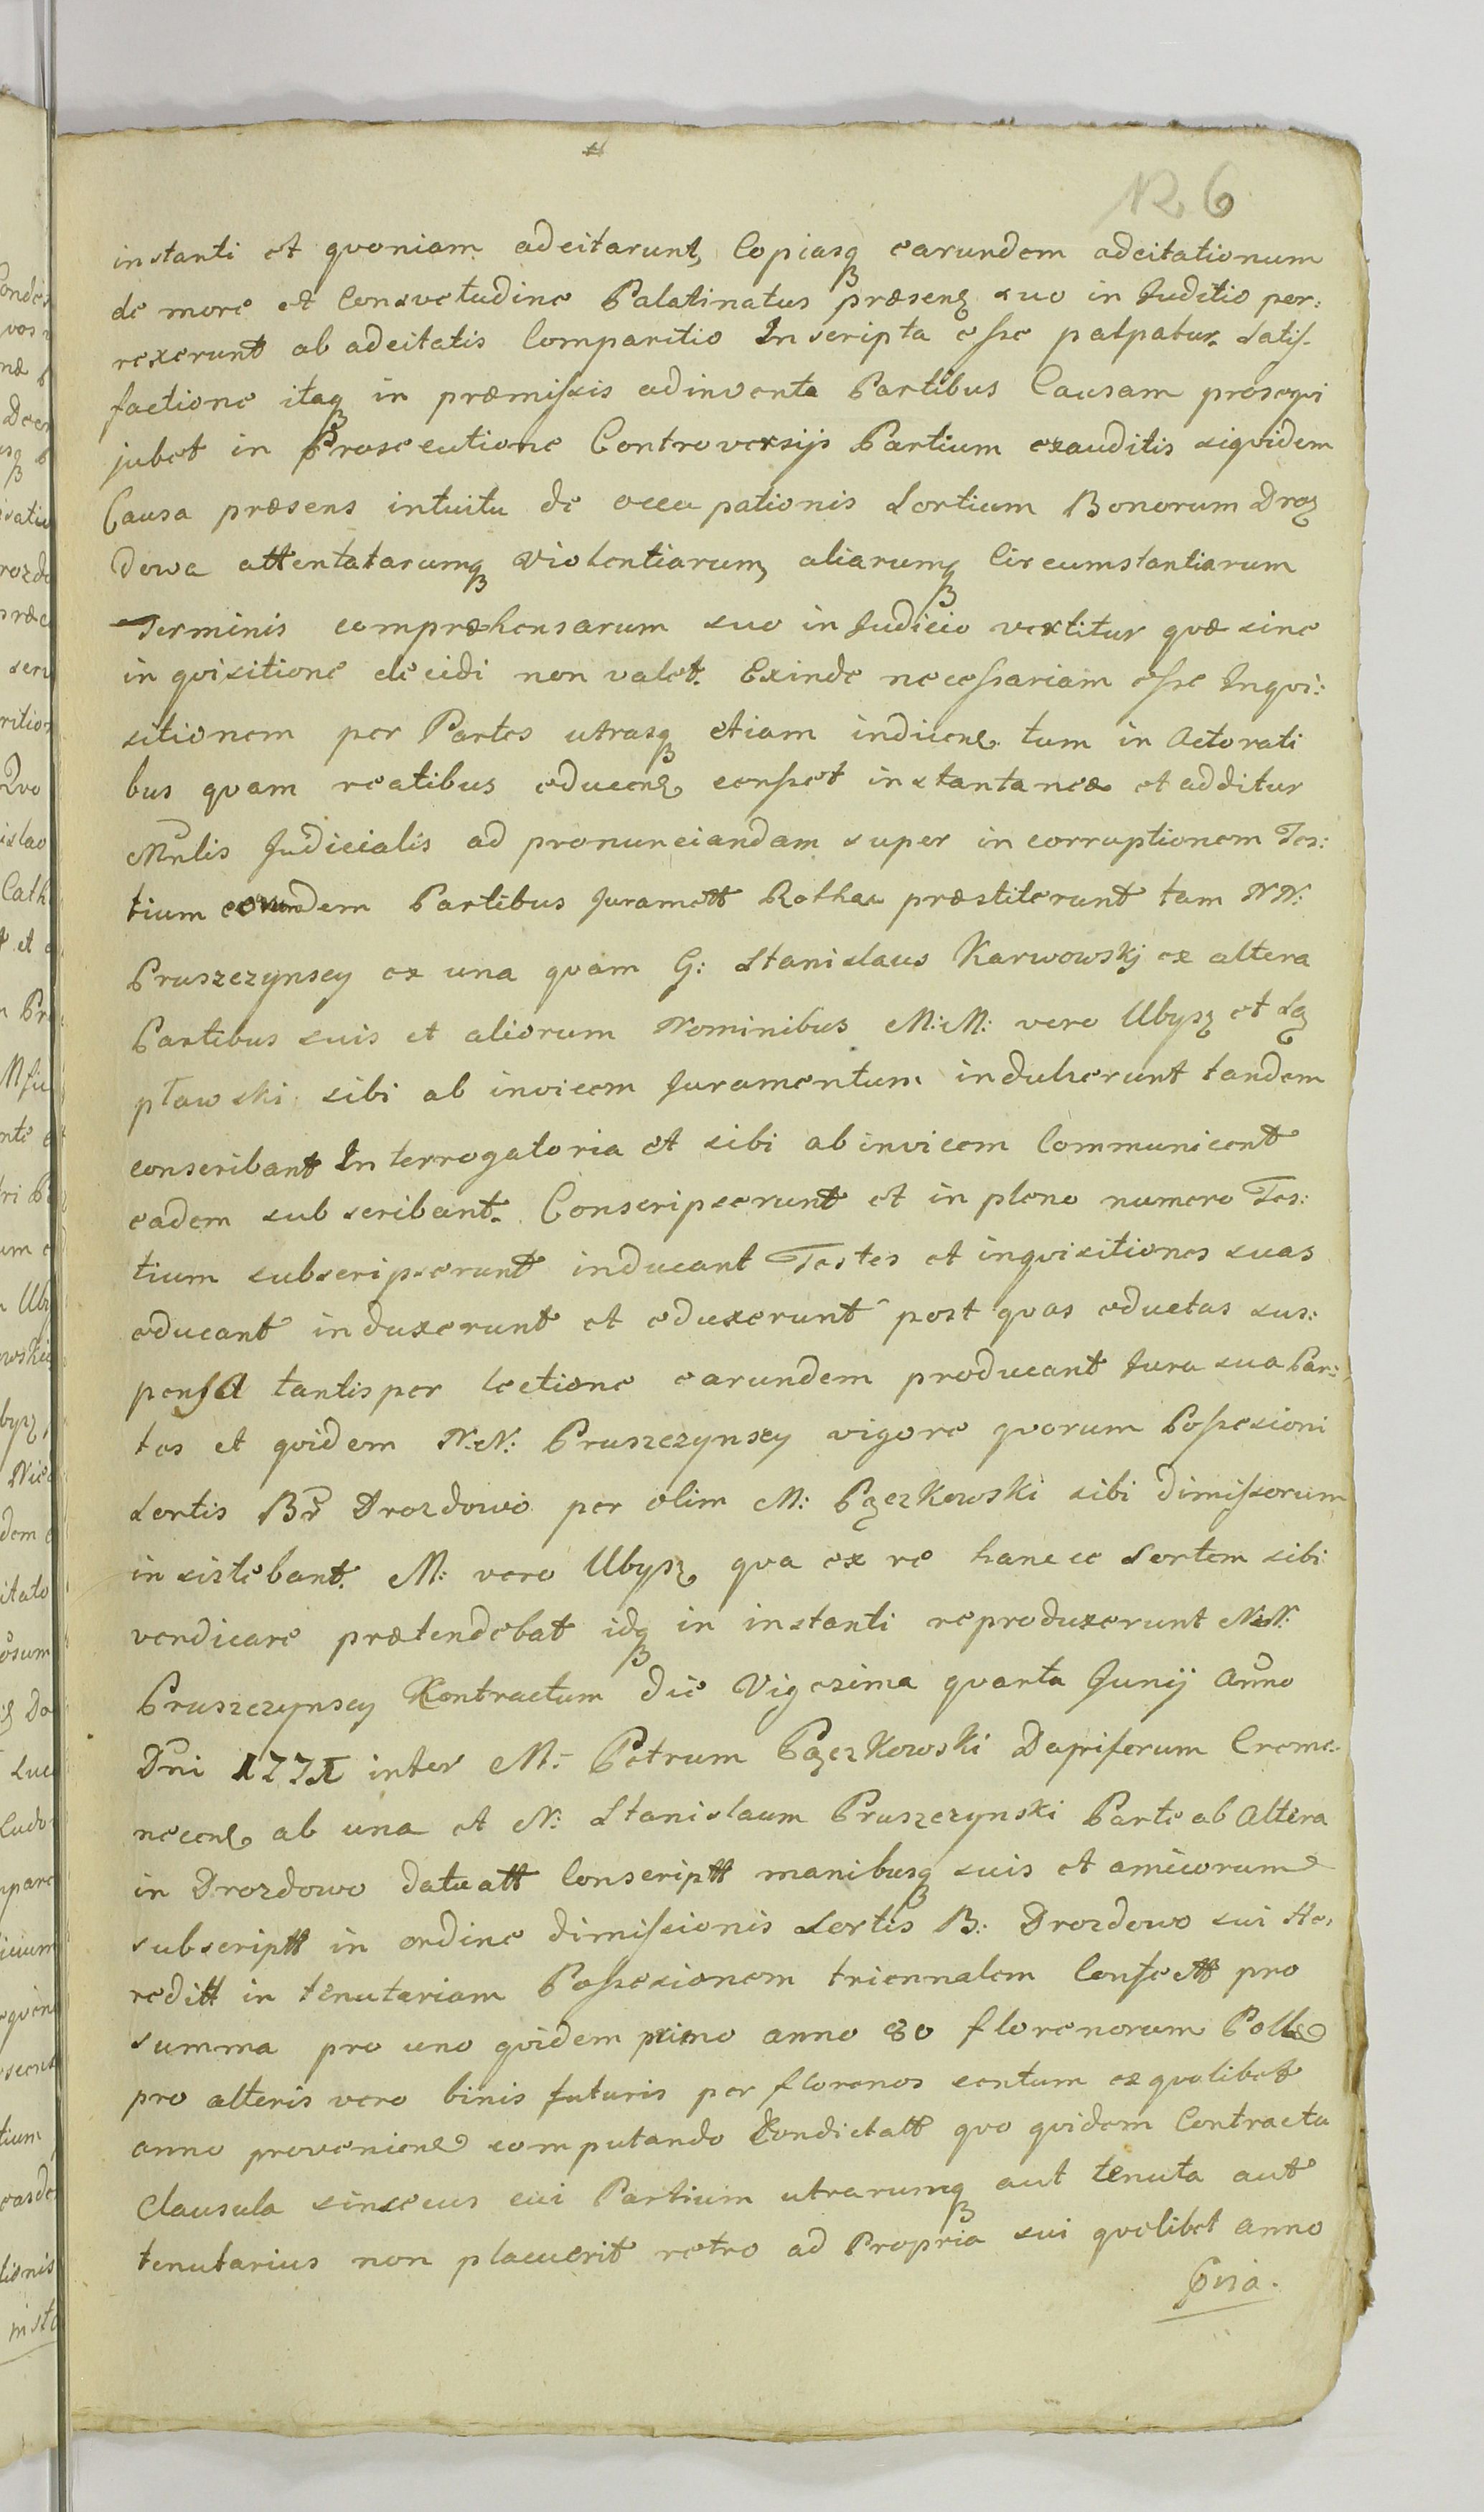 N 6
instanti et qvoniam adcitarunt, Copiasq earundem adcitationum
de more et Consvetudine Palatinatus præsenę suo in Juditio per:
rexerunt ab adcitatis Comparitio Inscripta esse patpatur. Satis-
factione itaq in præmissis adinventa Partibus Causam proseqvi
jubet in Prosecutione Controversijs Partium exauditis siqvidem
Causa præsens intuitu de occupationis Sortium Bonorum Droz
dowa attentatarumq violentiarum, aliarumq Circumstantiarum
Terminis compræhensarum suo in Judicio vertitur qvæ sine
inqvisitione decidi non valet. Exinde necessariam esse Inqvi:
sitionem per Partes utrasq etiam indicenę tum in Actorati
bus qvam reatibus educenę censset instantanee et additur
Mnlis Judicialis ad pronunciandam super incorruptionem Tes:
tium eorundem Partibus Juramett Rothas præstiterunt tam NN:
Pruszczynscy ex una qvam G: Stanislaus Karwowskj ex altera
Partibus suis et aliorum Nominibus M:M: vero Ubysz et Są
ptawski sibi ab invicem Juramentum indulserunt tandem
conscribant Interrogatoria et sibi ab invicem Communicent
eadem subscribant. Conscripserunt et in pleno numero Tes:
tium subscripserunt inducant Testes et inqvisitiones suas
educant induxerunt et eduxerunt post qvas eductas sus:
pensa tantisper lectione earundem producant Jura sua Par:
tes et qvidem N:N: Pruszczynscy vigore qvorum Possesioni
Sortis Br Drozdowo per olim M: Pączkowski sibi dimissorum
insistebant. M: vero Ubysz qva ex re hancce Sortem sibi
vendicare prætendebat idq in instanti reproduxerunt N:N:
Pruszczynscy Kontractum die Vigesima qvarta Junij Anno
Dni 1771 inter M: Petrum Pączkowski Dapiferum Creme-
necenę ab una et N: Stanislaum Pruszczynski Parte ab Altera
in Drozdowo datuatt Conscriptt manibusq suis et amicorum
subscriptt in ordine dimissionis Sortis B: Drozdowo sui He:
reditt in tenutariam Possesionem triennalem Confectt pro
summa pro uno qvidem primo anno 80 florenorum Poll
pro alteris vero binis futuris per florenos centum ex qvolibet
anno provenienę computando Condictatt qvo qvidem Contractu
Clausula sinsecus cui Partium utrarumq aut tenuta aut
tenutarius non placuerit retro ad Propria sui qvolibet anno